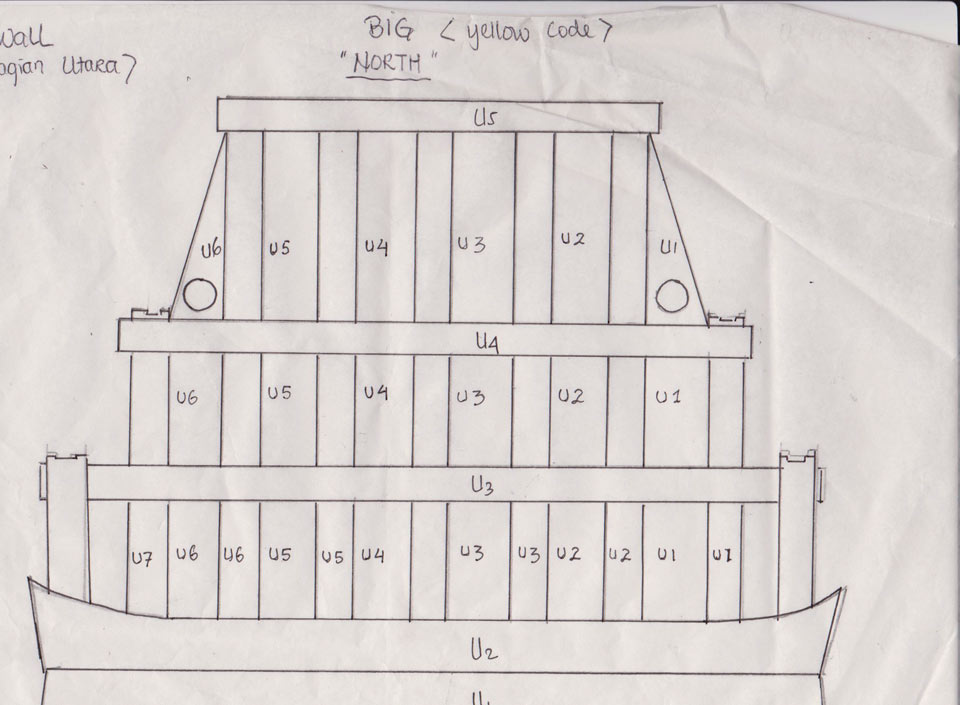 Wall
BIG < yellow code >
Utara >
"NORTH"
U5
U6 U5 U4 U3 U2 U1
U4
U6 U5 U4 U3 U2 U1
U3
U7 U6 U6 U5 U5 U4 U3 U3 U2 U2 U1 U1
U2